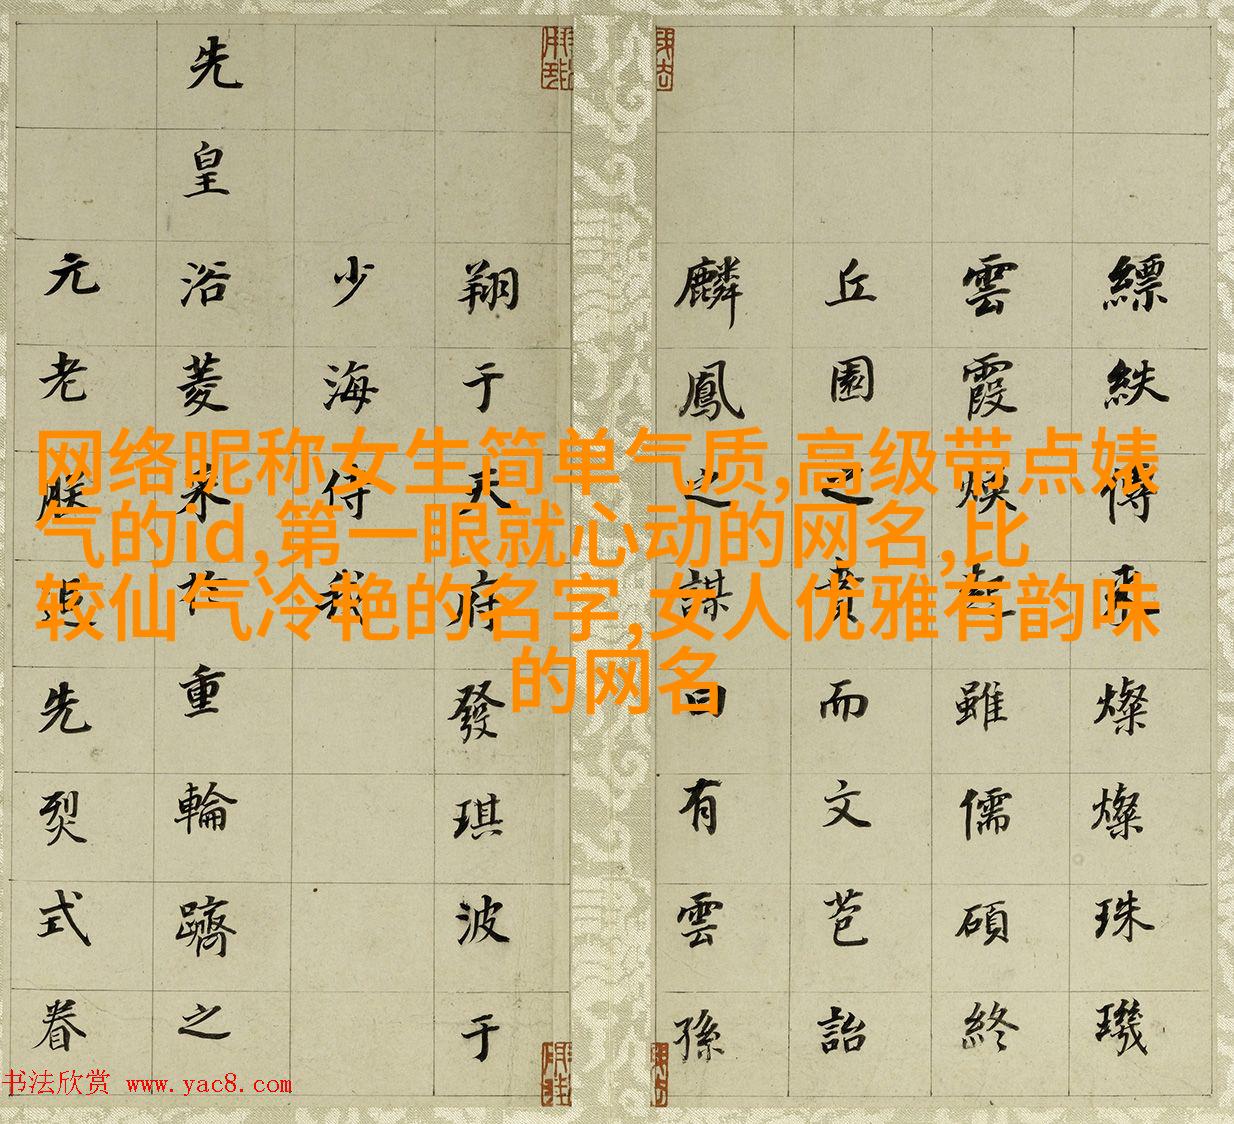 网络昵称女生简单气质,高级带点婊
气的id,第一眼就心动的网名,比
较仙气冷艳的名字,女人优雅有韵味
的网名
縹紩傳來燦燦珠璣
雲霞煥雖儒碩終
丘園之賁而文苞詒
麟鳳之謀曰有雲孫
翔于天府發琪波于
少海侍我
先皇浴蔆重輪躋之
元老朕追先烈式眷
书法欣赏 www.yac8.com